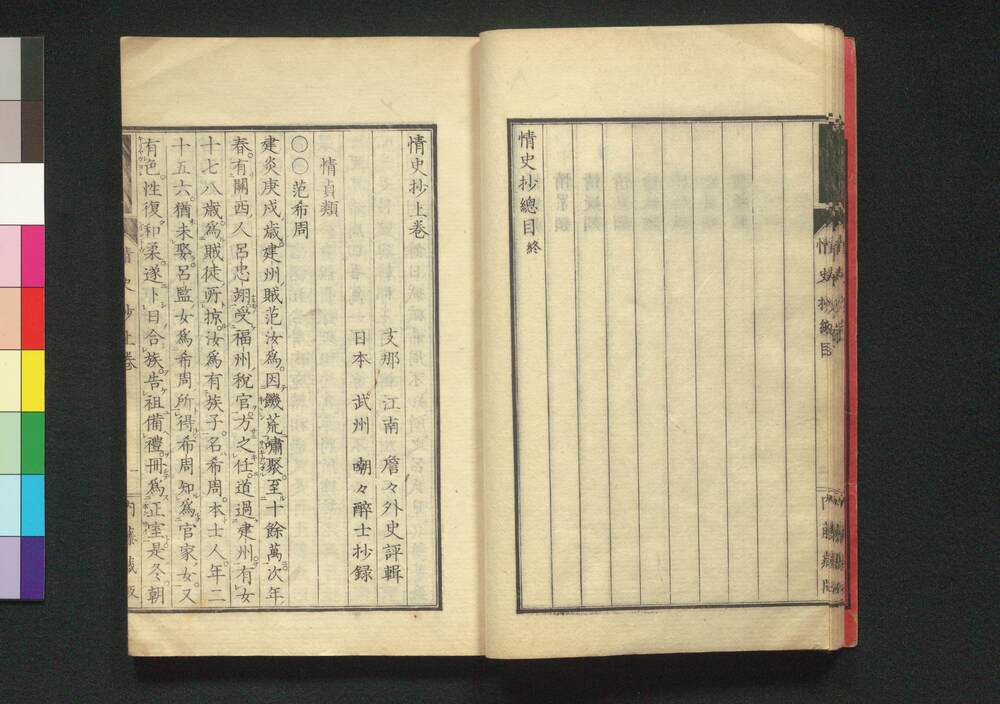 情史抄總目終
情史抄總目
內藤藏版
情史抄上卷
支那 江南 詹々外史評輯
日本 武州 嘲々醉士抄録
情貞類
〇〇范希周
建炎庚戌歲建州賊范汝爲因饑荒嘯聚至十餘萬次年
春有關西人呂忠翊受福州稅官方之任道過建州有女
十七八歲爲賊徒所掠汝爲有族子名希周本士人年二
十五六猶未娶呂監女爲希周所得希周知爲官家女又
有色性復和柔遂卜日合族告祖備禮冊爲正室是冬朝
情史抄上卷
一
內藤藏版